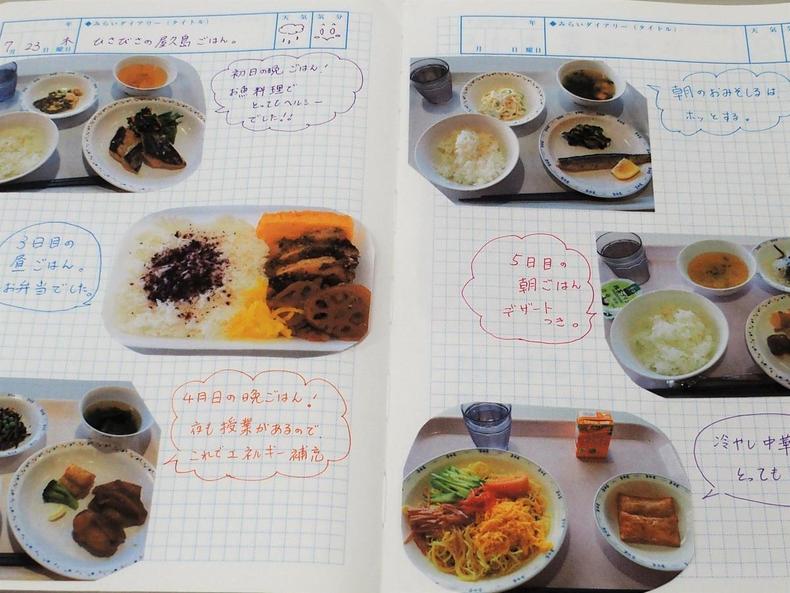 年 ◆みらいダイアリー(タイトル) 天気 気分
7月 23日 木曜日 ひさびさの屋久島ごはん。
初日の晩ごはん!
お魚料理で
とってもヘルシー
でした!!
3日目の
昼ごはん。
お弁当でした。
4日目の晩ごはん!
夜も授業があるので
これでエネルギー補充
年 ◆みらいダイアリー(タイトル) 天気
月 日 曜日
朝のおみそしるは
ホッとする。
5日目の
朝ごはん
デザート
つき。
冷やし中華
とっても